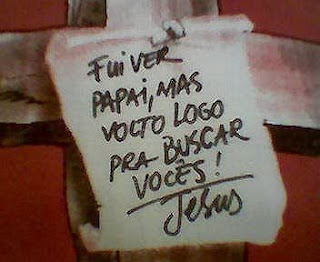 FUI VER
PAPAI, MAS
VOLTO LOGO
PRA BUSCAR
VOCÊS!
Jesus